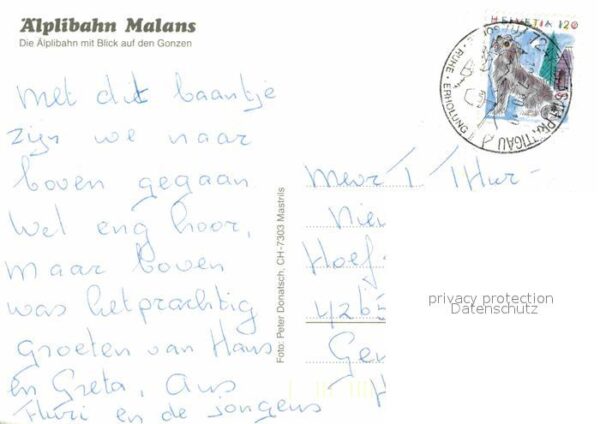 Älplibahn Malans
Die Älplibahn mit Blick auf den Gonzen
HELVETIA 120
RUHE - ERHOLUNG
Met dit baantje
zijn we naar
boven gegaan
Wel eng hoor,
maar boven
was het prachtig
Groeten van Hans
en Greta,
en de jongens
Foto: Peter Donatsch, CH-7303 Mastrils
Mevr T Thur-
Nieu
Hoef-
4265
Gen
privacy protection
Datenschutz